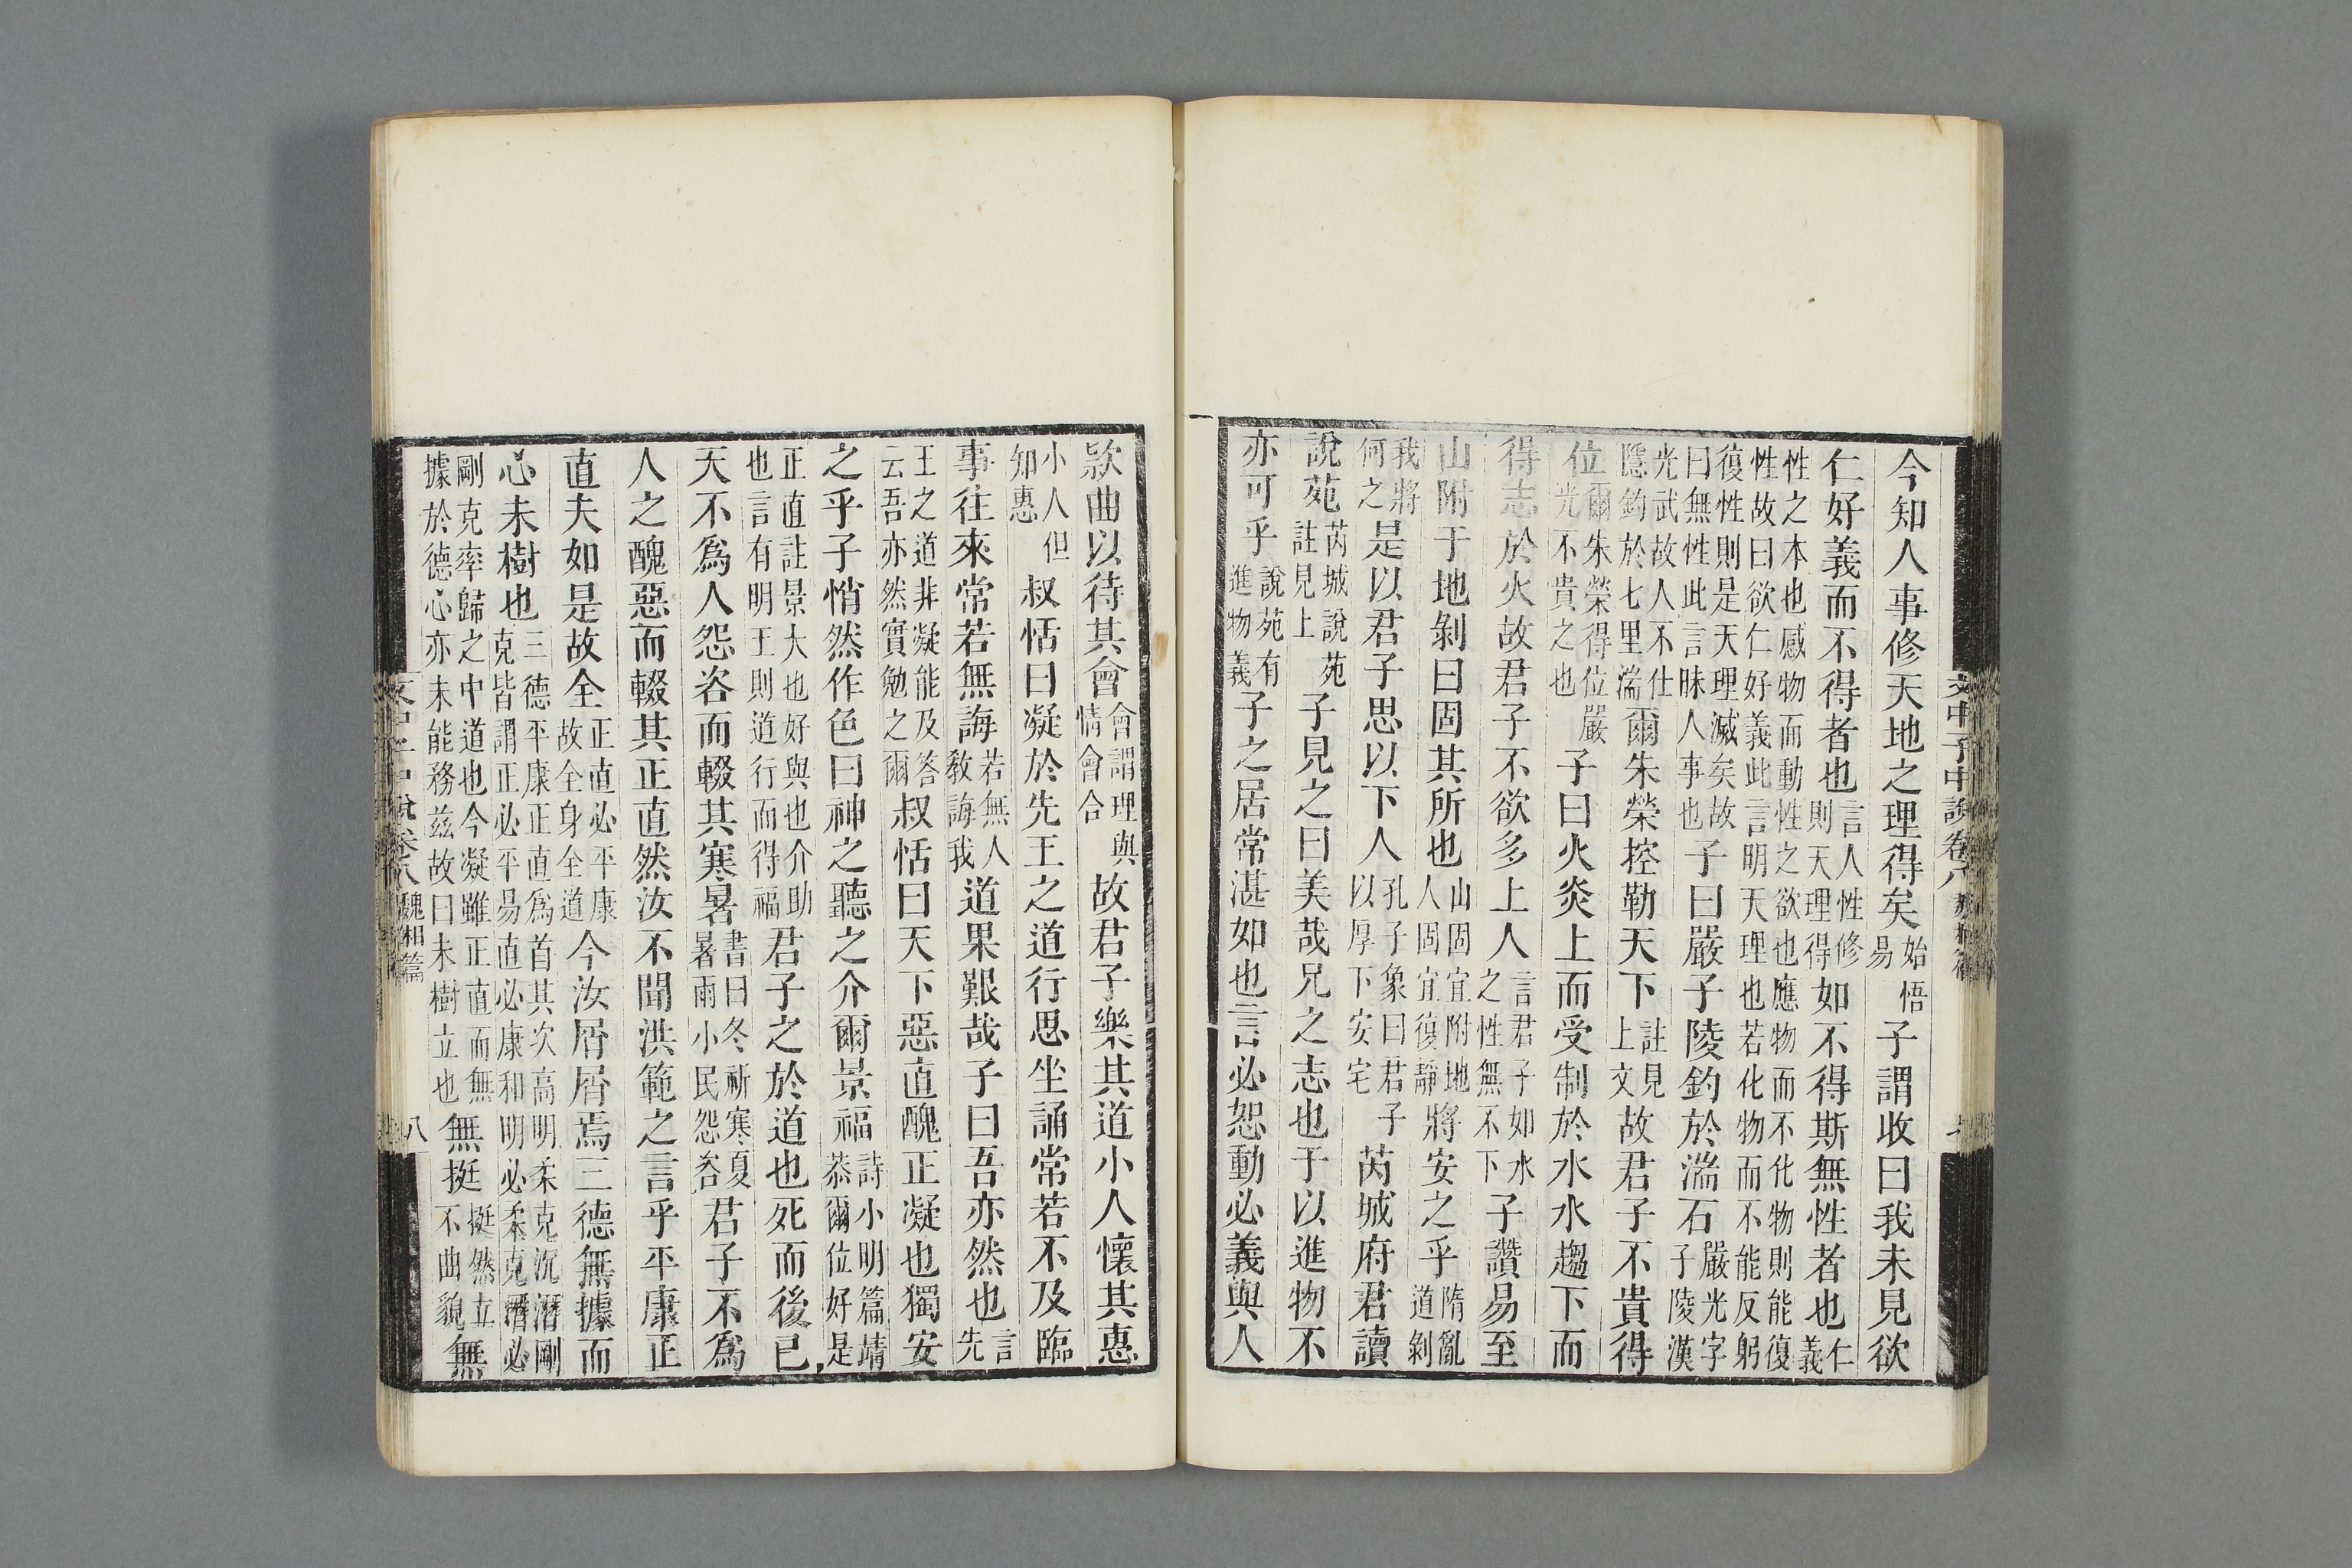 今知人事修天地之理得矣始悟易子謂收曰我未見欲
仁好義而不得者也言人性修則天理得如不得斯無性者也仁義
性之本也感物而動性之欲也應物而不化物則能復性故曰欲仁好義此言明天理也若化物而不能反躬
復性則是天理滅矣故曰無性此言昧人事也子曰嚴子陵釣於湍石嚴光字子陵漢
光武故人不仕隱釣於七里湍爾朱榮控勒天下註見上文故君子不貴得
位爾朱榮得位嚴光不貴之也子曰火炎上而受制於水水趨下而
得志於火故君子不欲多上人言君子如水之性無不下子讚易至
山附于地剝曰固其所也山固宜附地人固宜復靜將安之乎隋亂道剝
我將何之是以君子思以下人孔子象曰君子以厚下安宅芮城府君讀
說苑芮城說苑註見上子見之曰美哉兄之志也于以進物不
亦可乎說苑有進物義子之居常湛如也言必恕動必義與人
文中子中說卷八
款曲以待其會會謂理與情會合故君子樂其道小人懷其惠
小人但知惠叔恬曰凝於先王之道行思坐誦常若不及臨
事往來常若無誨若無人教誨我道果艱哉子曰吾亦然也言先
王之道非凝能及答云吾亦然實勉之爾叔恬曰天下惡直醜正凝也獨安
之乎子悄然作色曰神之聽之介爾景福詩小明篇靖恭爾位好是
正直註景大也好與也介助也言有明王則道行而得福君子之於道也死而後已
天不為人怨咨而輟其寒暑書曰冬祈寒夏暑雨小民怨咨君子不為
人之醜惡而輟其正直然汝不聞洪範之言乎平康正
直夫如是故全正直必平康故全身全道今汝屑屑焉三德無據而
心未樹也三德平康正直為首其次高明柔克沉潛剛克皆謂正必平易直必康和明必柔克潛必
剛克率歸之中道也今凝雖正直而無據於德心亦未能務茲故曰未樹立也無挺挺然立不曲貌無
文中子中說卷八 魏相篇 八